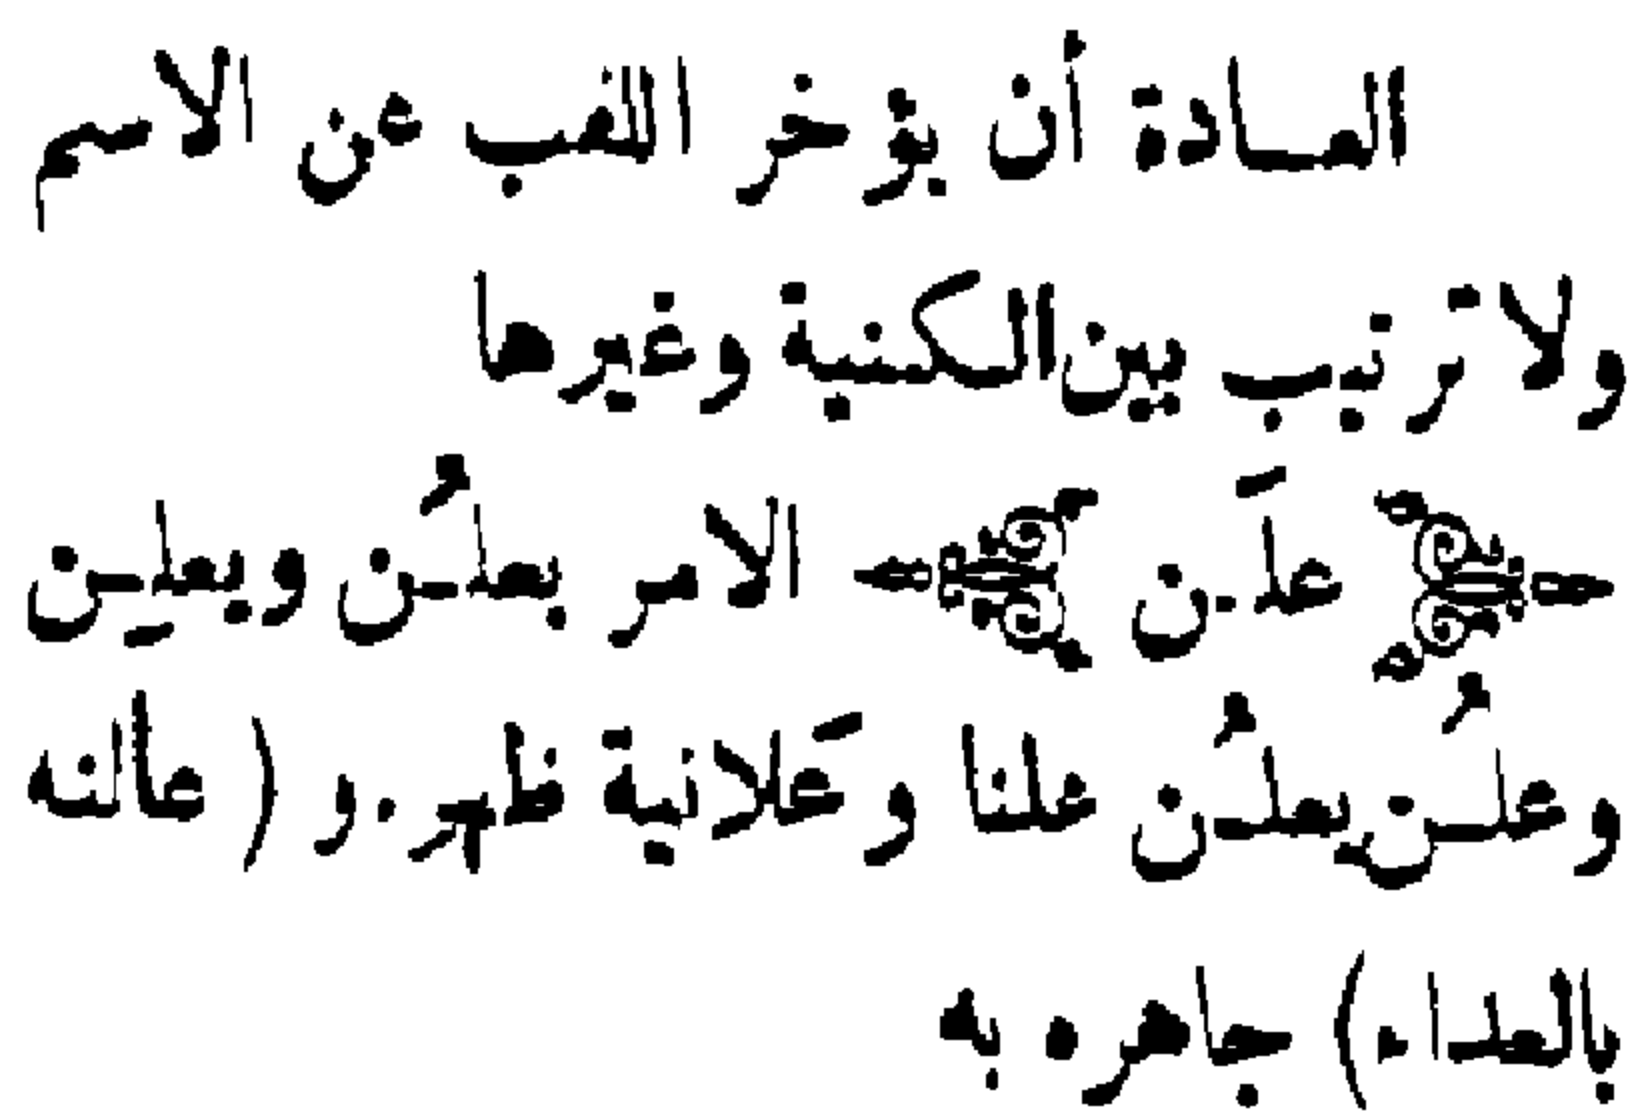 العادة أن يؤخر اللقب عن الاسم
ولا ترتيب بين الكنية وغيرها
علَن الامر يعلُن ويعلِن
وعلُن يعلُن علنا وعَلانية ظهر. و (عالنه
بالعداء) جاهره به